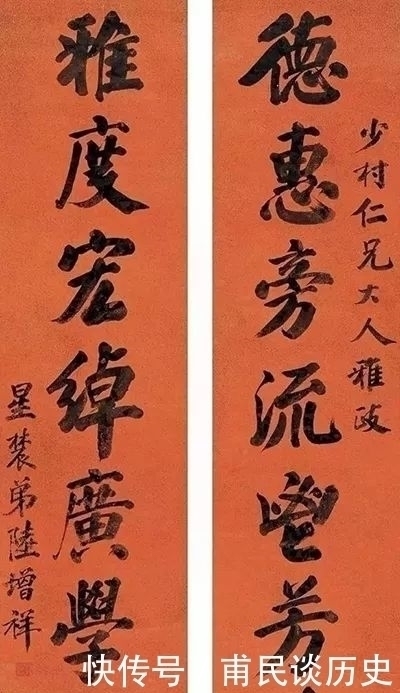 少村仁兄大人雅政
德惠旁流鬯芳
雅度宏綽廣學
星農弟陸增祥
快传号 甫民谈历史